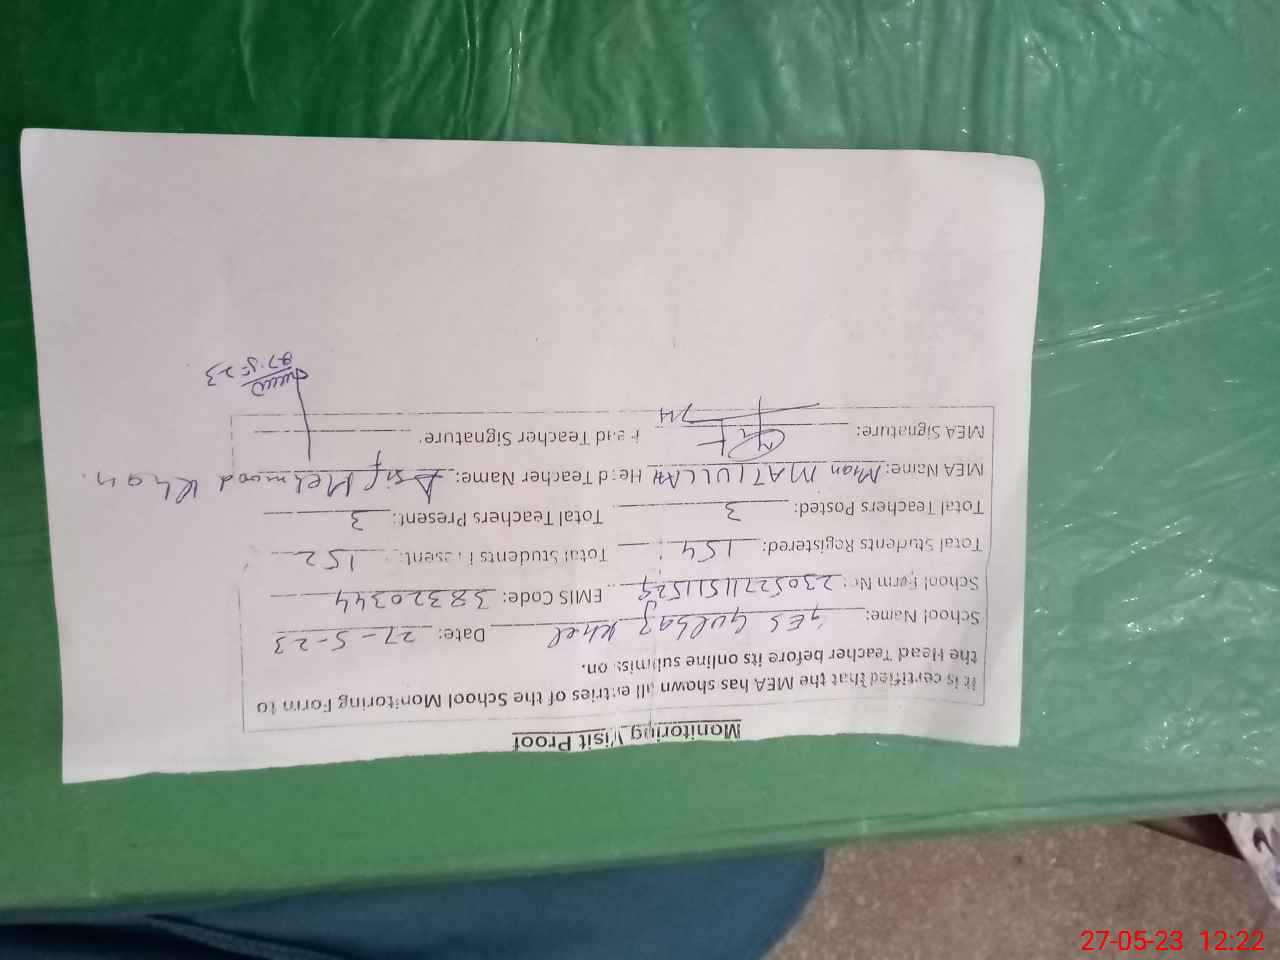 Monitoring Visit Proof
It is certified that the MEA has shown all entries of the School Monitoring Form to
the Head Teacher before its online submission.
School Name: GES Gulbaz Khel Date: 27-5-23
School Form No: 230527115111529 EMIS Code: 38320344
Total Students Registered: 154 Total Students Present: 152
Total Teachers Posted: 3 Total Teachers Present: 3
MEA Name: Khan MATIULLAH Head Teacher Name: Asif Mehmood Khan.
MEA Signature: 74 Head Teacher Signature:
27.5-23
27-05-23 12:22